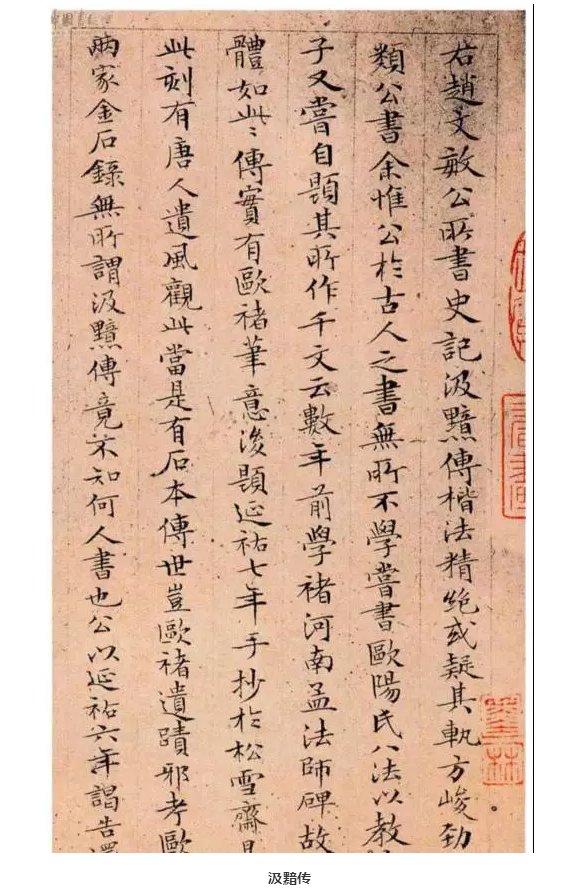 右趙文敏公所書史記汲黯傳楷法精絶或疑其軌方峻勁
類公書余惟公於古人之書無所不學嘗書歐陽氏八法以教
子又嘗自題其所作千文云數年前學褚河南孟法師碑故
體如此〻傳實有歐褚筆意後題延祐七年手抄於松雪齋
此刻有唐人遺風觀此當是有石本傳世豈歐褚遺蹟邪考歐
兩家金石錄無所謂汲黯傳竟不知何人書也公以延祐六年謁告
汲黯传